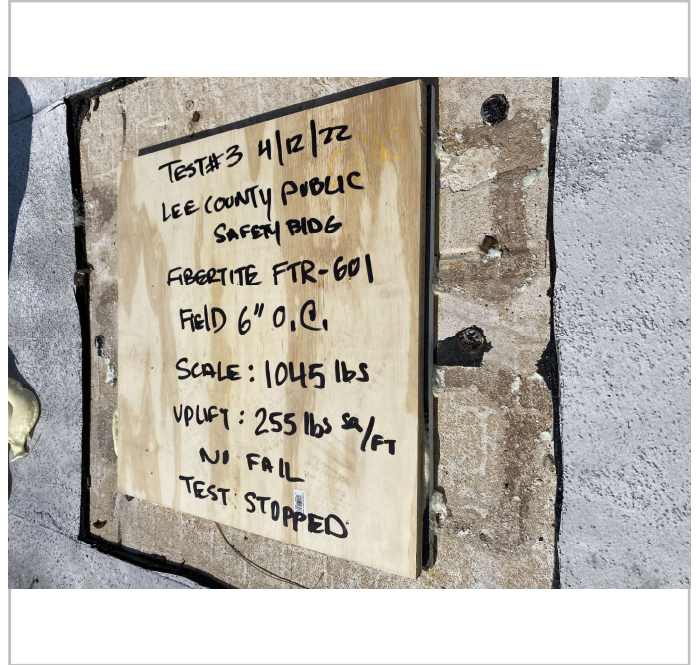 TEST#3 4/12/22
LEE COUNTY PUBLIC
SAFETY BLDG
FIBERTITE FTR-601
FIELD 6" O.C.
SCALE: 1045 lbs
UPLIFT: 255 lbs SQ/FT
NO FAIL
TEST STOPPED